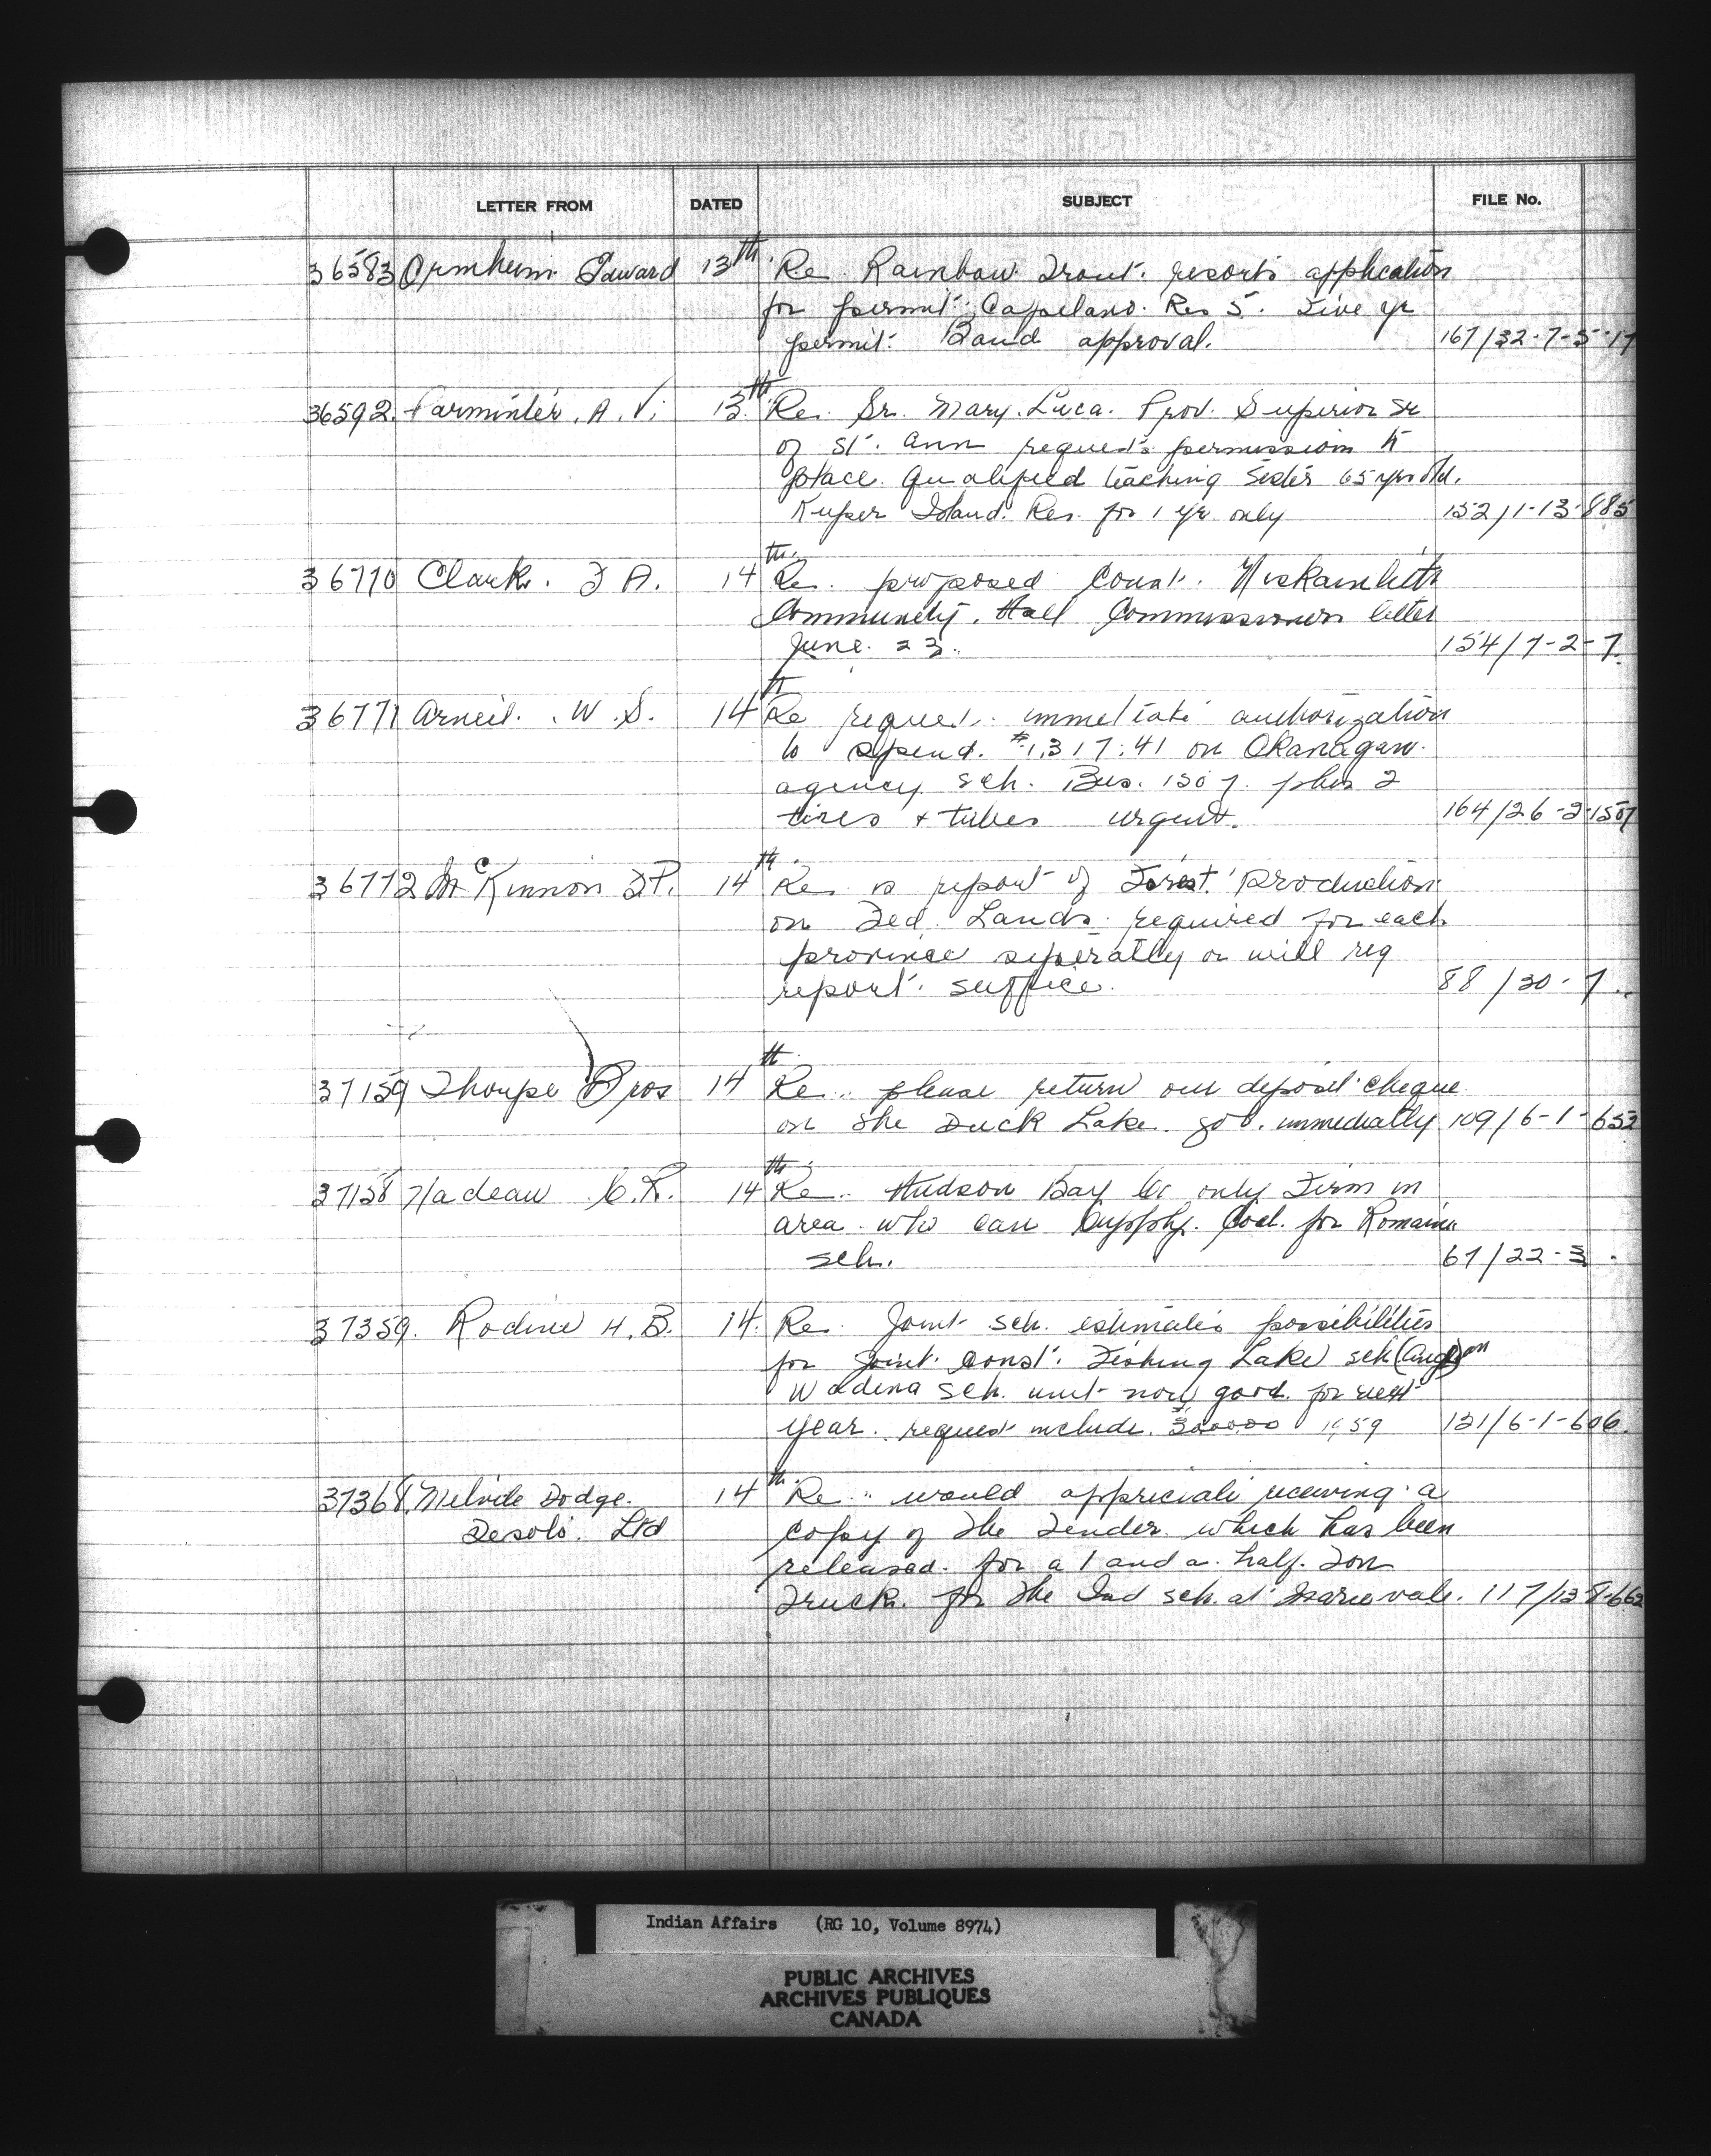 LETTER FROM DATED SUBJECT FILE No.
36583 Ormheim Edward 13th Re. Rainbow Trout resorts application
for permit Copeland. Res 5. Five yr
permit. Band approval. 167/32-7-5-17
36592. Parminter. A. V. 13th Re. Sr. Mary. Luca. Prov. Superior Sr
of St. Ann requests permission to
place Qualified teaching Sister 65 yrs old.
Kuper Island. Res. for 1 yr only 152/1-13-885
36770 Clark. F A. 14th Re. proposed Const. Niskamlith
Community. Hall Commissioners letter
June. 23. 154/7-2-7.
36771 Arneil. W. S. 14th Re request immediate authorization
to spend. $1,317.41 on Okanagan
agency sch. Bus. 1507. plus 2
tires + tubes urgent. 164/26-2-1507
36772 McKinnon 14th Re. is report of Forest Production
on Fed. Lands required for each
province seperatly or will reg
report. suffice. 88/30-7
37159 Thorpe Bros 14th Re.. please return our deposit cheque
on the Duck Lake job. immediatly 109/6-1-652
37158 Nadeau C.R. 14th Re.. Hudson Bay Co only Firm in
area who can supply. Coal. for Romaine
sch. 67/22-3
37359. Rodine H. B. 14. Re. Joint sch. estimates possibilities
for joint const. Fishing Lake sch on
Wadena sch. unit now good for next
year. request include. 300000 1959 121/6-1-606.
37368. Melville Dodge. 14th Re.. would appreciate receiving a
Desoto. Ltd copy of the Tender which has been
released. for a 1 and a half. Ton
Truck. for the Ind sch. at Marieval. 117/13-8-662
Indian Affairs (RG 10, Volume 8974)
PUBLIC ARCHIVES
ARCHIVES PUBLIQUES
CANADA